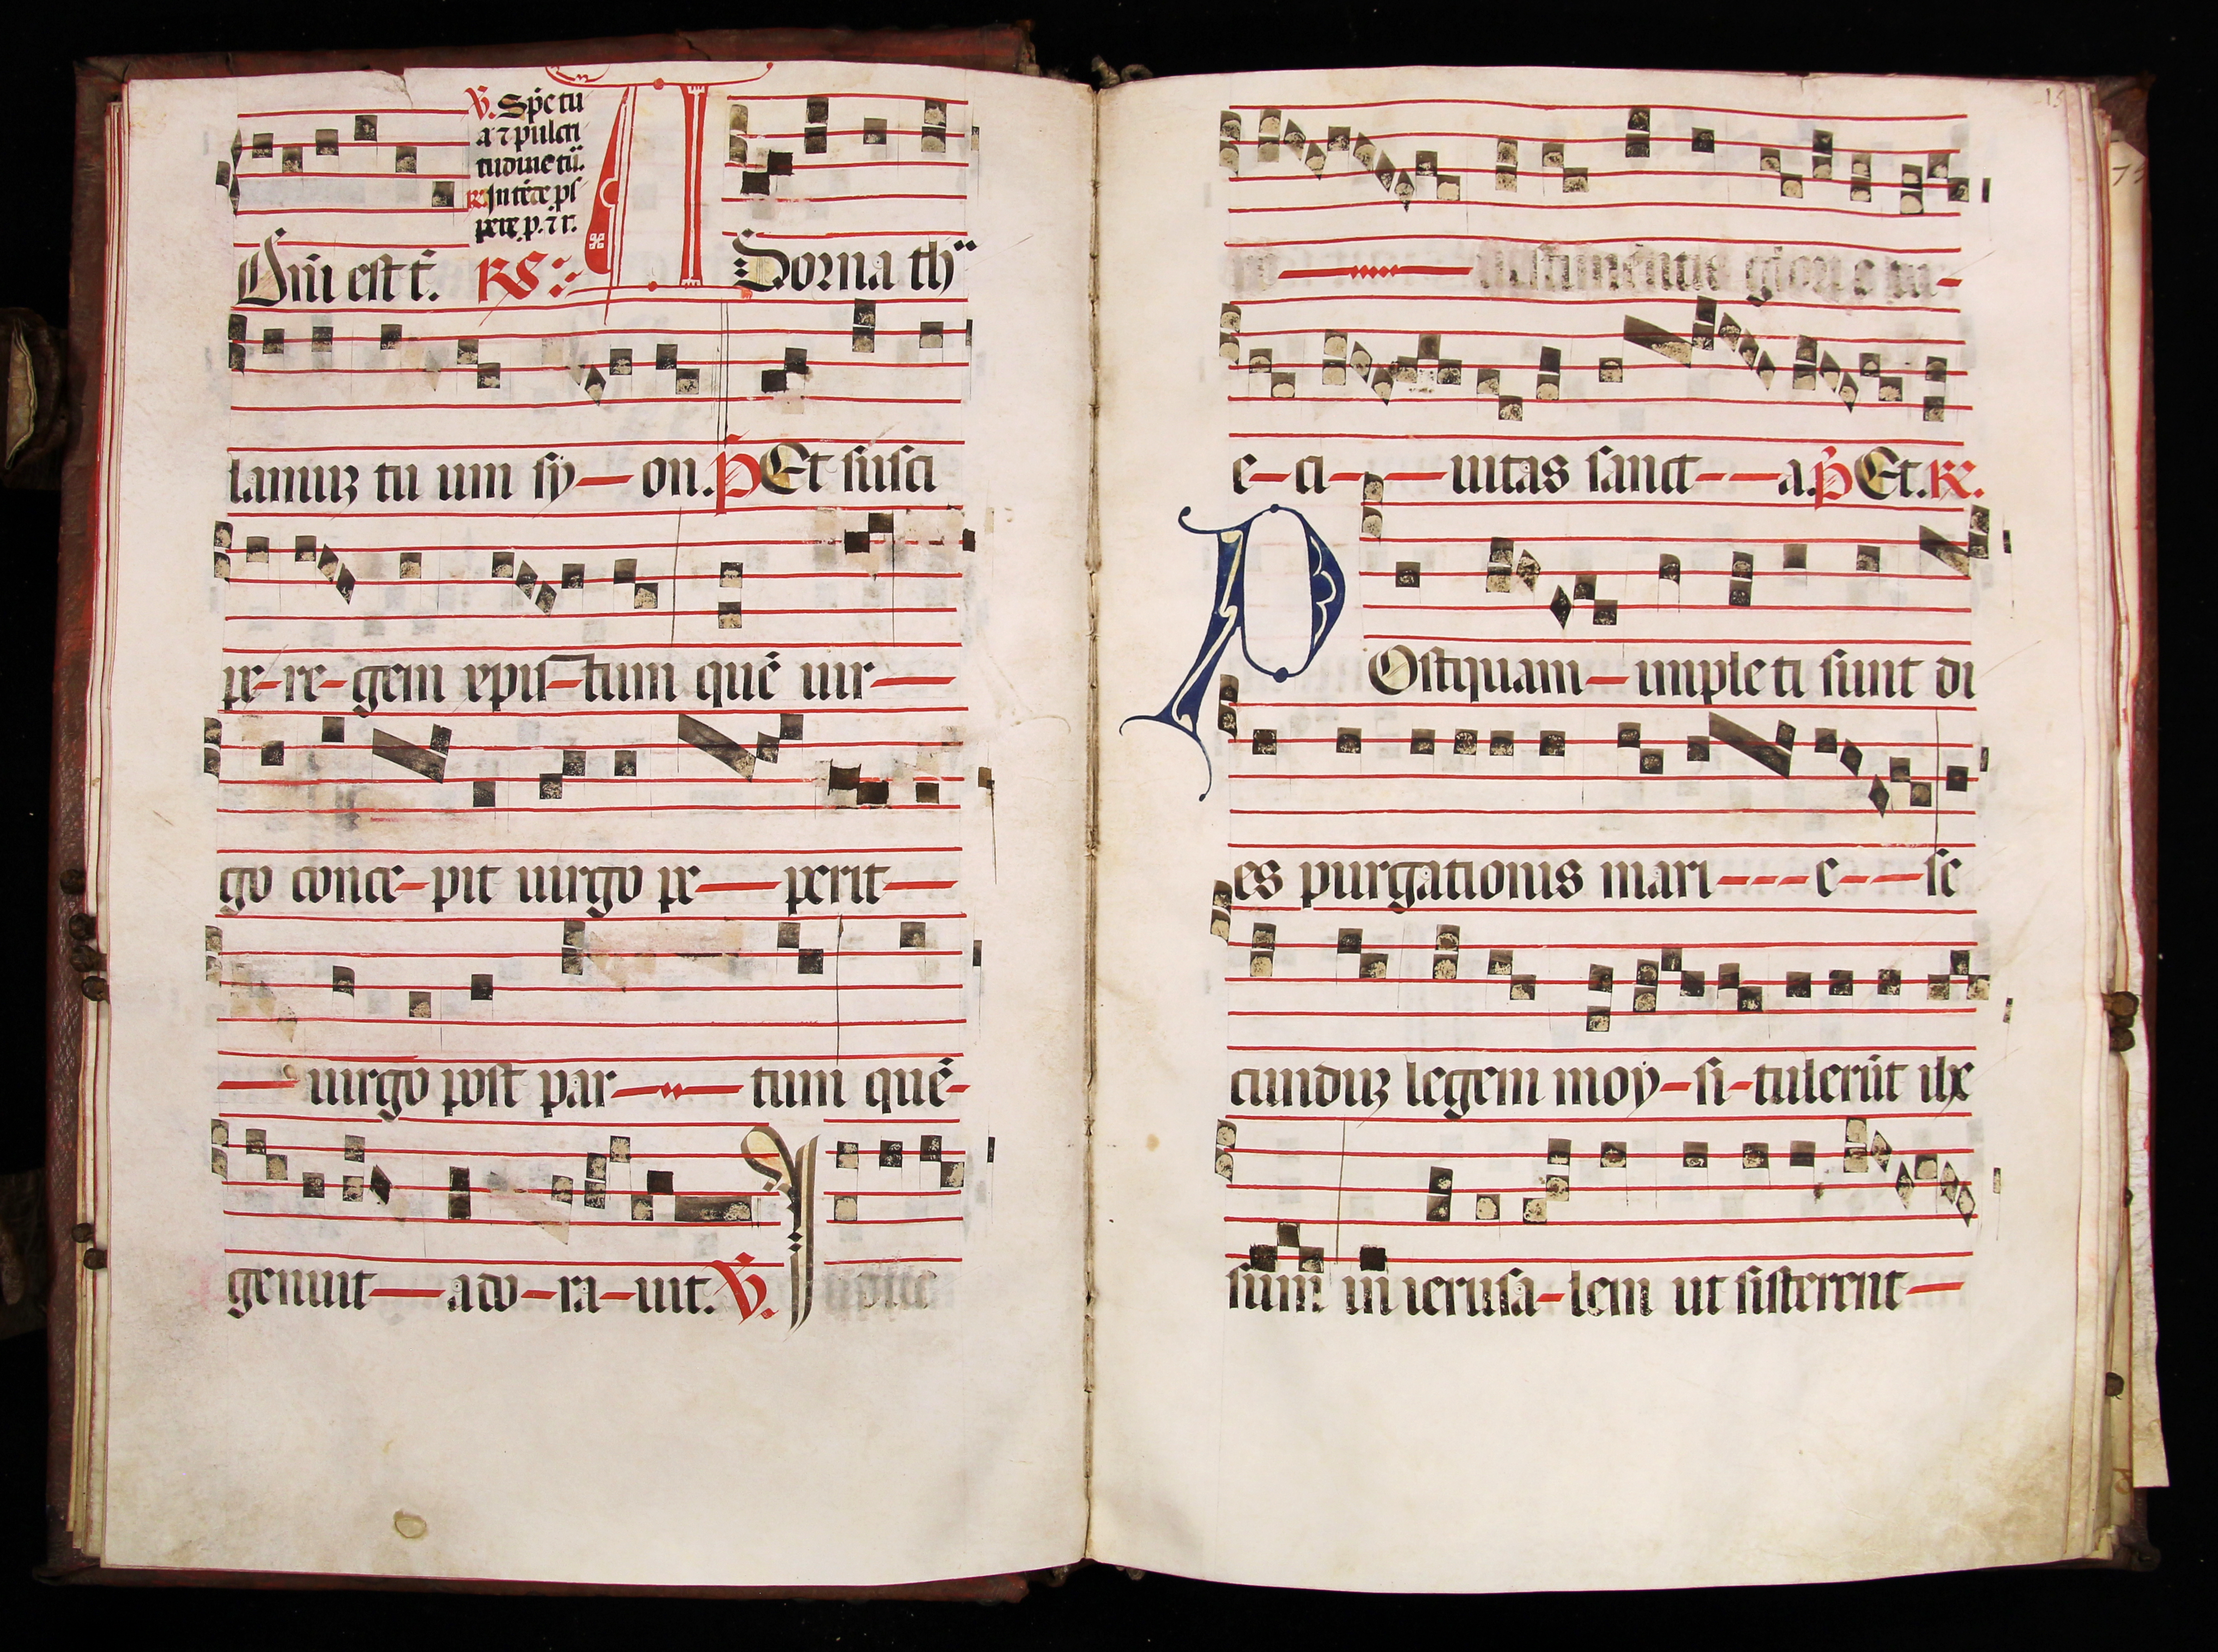 ℣. Spē tu
a ⁊ pulcri
tudine tū.
℟ Intēde ps
pere. p. ⁊ r.
Om̄i est t̄. ℟
A Dorna th
lamuꝫ tu um sy — on. P Et susci
pe - re - gem xpis - tum quē uir —
go conce - pit uirgo pe — perit —
— uirgo post par — tum quē -
genuit — ado - ra - uit. ℣. I
glorie tu -
e - ci - — uitas sanct - - a. P Et. ℟.
P Ostquam — imple ti sunt di
es purgationis mari - - - e - - - se
cunduꝫ legem moy - si - tulerūt ihe
sum in ierusa - lem ut sisterent —